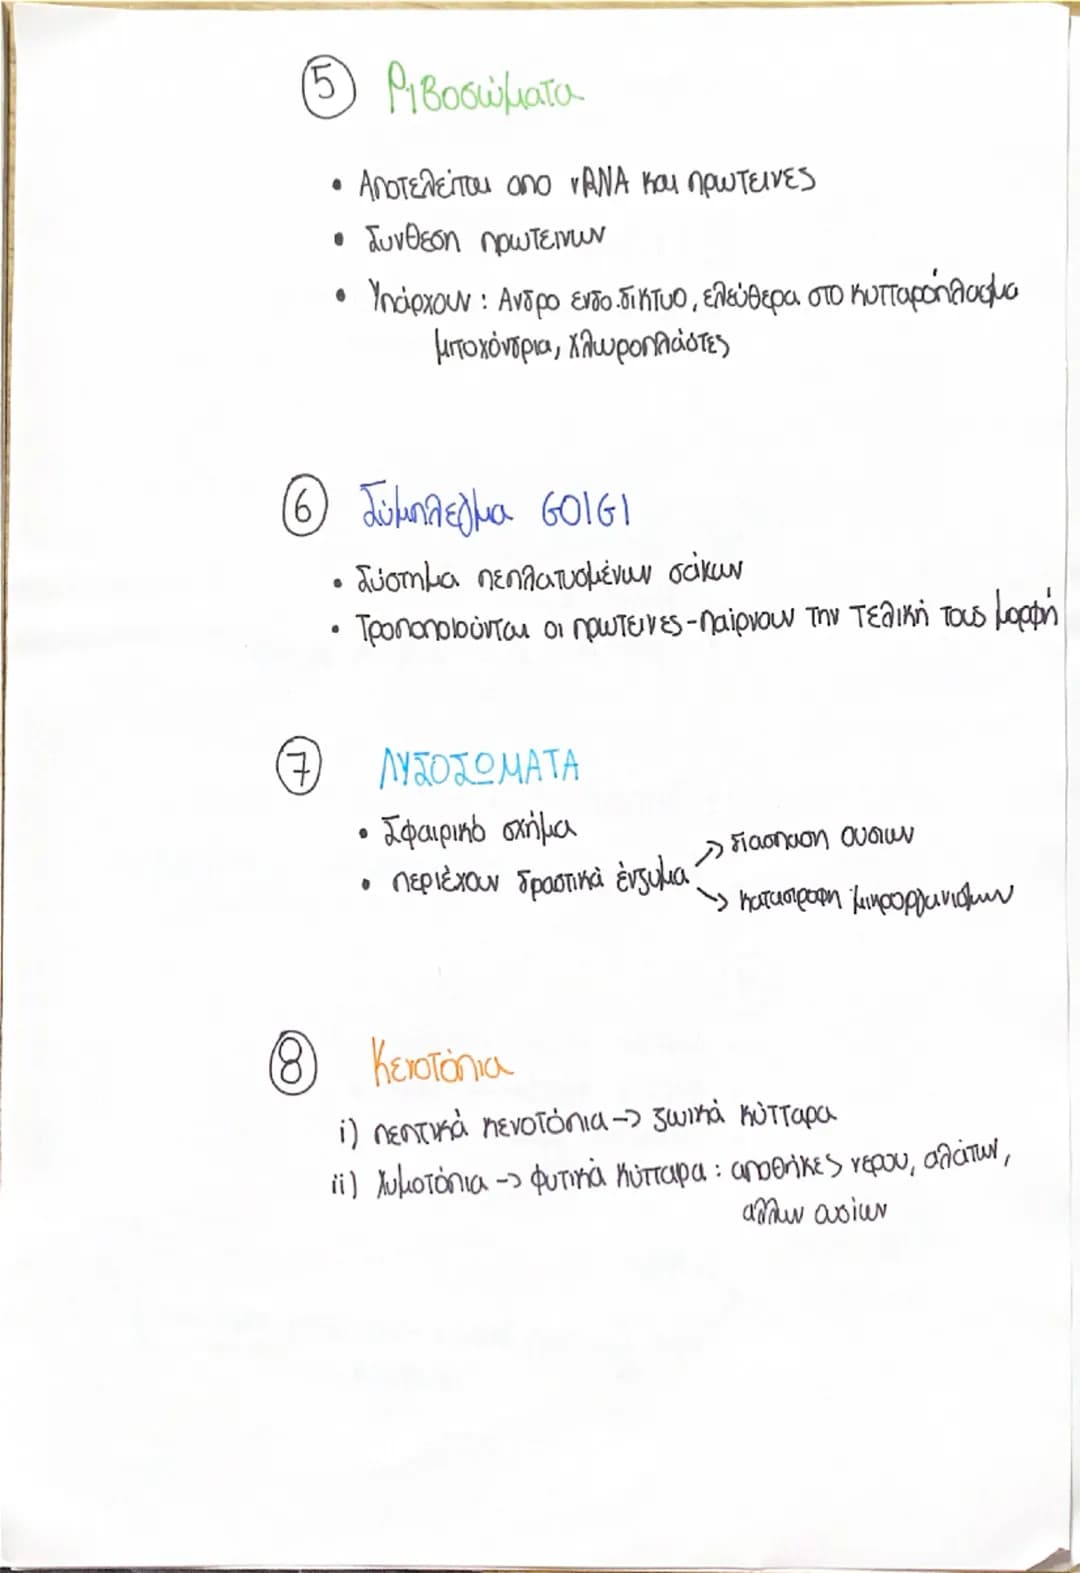 5 Ριβοσώματα
• Αποτελείται απο rRNA και πρωτεινες
• Συνθεση πρωτεινων
• Υπάρχουν : Ανδρο ενδο.δικτυο, ελεύθερα στο κυτταρόπλασμα
μιτοχόνδρια, χλωροπλάστες
6 Σύμπλεγμα GOlGI
• Σύστημα πεπλατυσμένων σάκων
• Τροποποιούνται οι πρωτεινες-παίρνουν την τελική τους μορφή
7 ΛΥΣΟΣΩΜΑΤΑ
• Σφαιρικό σχήμα
• περιέχουν δραστικά ένζυμα → διασπαση ουσιων
→ καταστροφη μικροοργανισμων
8 Κενοτόπια
i) πεπτικά κενοτόπια -> ζωικά κύτταρα
ii) Χυμοτόπια -> φυτικά κύτταρα : αποθήκες νερου, αλάτων,
αλλων ουσίων